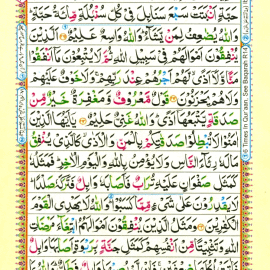 حَبَّةٍ اَنْۢبَتَتْ سَبْعَ سَنَابِلَ فِیْ كُلِّ سُنْۢبُلَةٍ مِّائَةُ حَبَّةٍ ؕ
وَ اللّٰهُ یُضٰعِفُ لِمَنْ یَّشَآءُ ؕ وَ اللّٰهُ وَاسِعٌ عَلِیْمٌ اَلَّذِیْنَ
یُنْفِقُوْنَ اَمْوَالَهُمْ فِیْ سَبِیْلِ اللّٰهِ ثُمَّ لَا یُتْبِعُوْنَ مَاۤ اَنْفَقُوْا
مَنًّا وَّ لَاۤ اَذًی ۙ لَّهُمْ اَجْرُهُمْ عِنْدَ رَبِّهِمْ ۚ وَ لَا خَوْفٌ عَلَیْهِمْ
وَ لَا هُمْ یَحْزَنُوْنَ قَوْلٌ مَّعْرُوْفٌ وَّ مَغْفِرَةٌ خَیْرٌ مِّنْ
صَدَقَةٍ یَّتْبَعُهَاۤ اَذًی ؕ وَ اللّٰهُ غَنِیٌّ حَلِیْمٌ یٰۤاَیُّهَا الَّذِیْنَ
اٰمَنُوْا لَا تُبْطِلُوْا صَدَقٰتِكُمْ بِالْمَنِّ وَ الْاَذٰی ۙ كَالَّذِیْ یُنْفِقُ
مَالَهٗ رِئَآءَ النَّاسِ وَ لَا یُؤْمِنُ بِاللّٰهِ وَ الْیَوْمِ الْاٰخِرِ ؕ فَمَثَلُهٗ
كَمَثَلِ صَفْوَانٍ عَلَیْهِ تُرَابٌ فَاَصَابَهٗ وَابِلٌ فَتَرَكَهٗ صَلْدًا ؕ
لَا یَقْدِرُوْنَ عَلٰی شَیْءٍ مِّمَّا كَسَبُوْا ؕ وَ اللّٰهُ لَا یَهْدِی الْقَوْمَ
الْكٰفِرِیْنَ وَ مَثَلُ الَّذِیْنَ یُنْفِقُوْنَ اَمْوَالَهُمُ ابْتِغَآءَ مَرْضَاتِ
اللّٰهِ وَ تَثْبِیْتًا مِّنْ اَنْفُسِهِمْ كَمَثَلِ جَنَّةٍۭ بِرَبْوَةٍ اَصَابَهَا وَابِلٌ
1-6 Times in Qur'aan, See Baqarah R:1